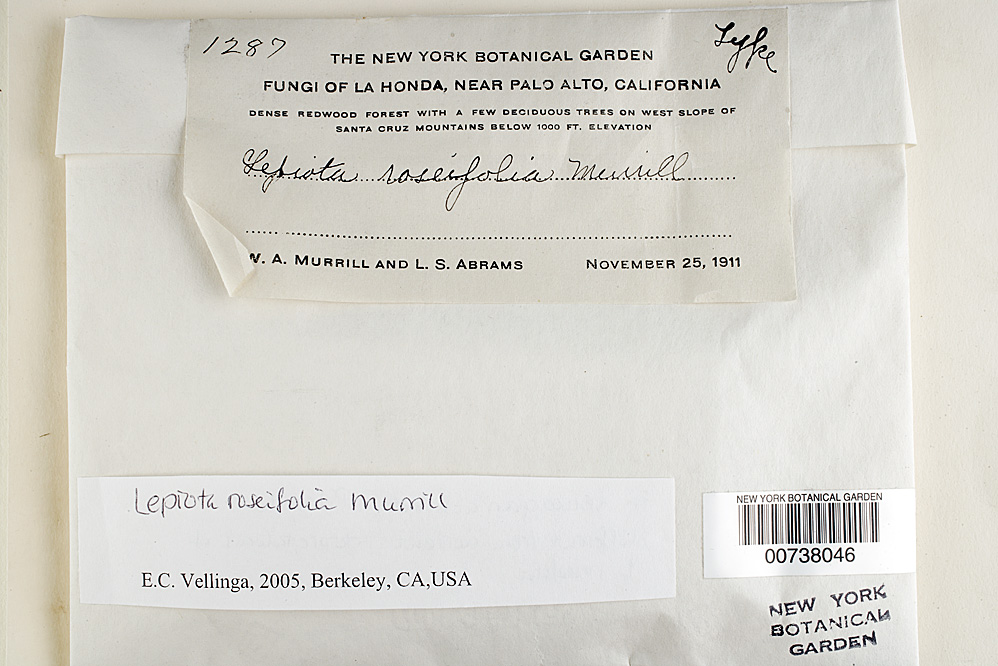 1287
Type
THE NEW YORK BOTANICAL GARDEN
FUNGI OF LA HONDA, NEAR PALO ALTO, CALIFORNIA
DENSE REDWOOD FOREST WITH A FEW DECIDUOUS TREES ON WEST SLOPE OF
SANTA CRUZ MOUNTAINS BELOW 1000 FT. ELEVATION
Lepiota roseifolia Murrill
W. A. MURRILL AND L. S. ABRAMS NOVEMBER 25, 1911
Lepiota roseifolia Murrill
E.C. Vellinga, 2005, Berkeley, CA,USA
NEW YORK BOTANICAL GARDEN
00738046
NEW YORK
BOTANICAL
GARDEN